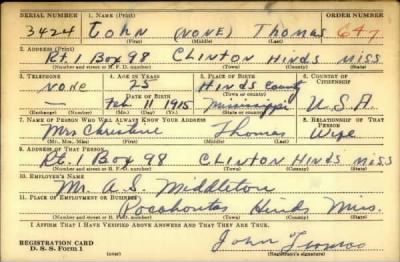 SERIAL NUMBER 1. NAME (Print) ORDER NUMBER
3424 John (NONE) Thomas 647
(First) (Middle) (Last)
2. ADDRESS (Print)
Rt. 1 Box 98 CLINTON HINDS MISS
(Number and street or R. F. D. number) (Town) (County) (State)
3. TELEPHONE 4. AGE IN YEARS 5. PLACE OF BIRTH 6. COUNTRY OF CITIZENSHIP
NONE 25 Hinds County
DATE OF BIRTH (Town or county)
— Feb. 11 1915 Mississippi U.S.A
(Exchange) (Number) (Mo.) (Day) (Yr.) (State or country)
7. NAME OF PERSON WHO WILL ALWAYS KNOW YOUR ADDRESS 8. RELATIONSHIP OF THAT PERSON
Mrs Christine Thomas Wife
(Mr., Mrs., Miss) (First) (Middle) (Last)
9. ADDRESS OF THAT PERSON
Rt. 1 Box 98 CLINTON HINDS MISS
(Number and street or R. F. D. number) (Town) (County) (State)
10. EMPLOYER'S NAME
Mr. A.S. Middleton
11. PLACE OF EMPLOYMENT OR BUSINESS
Pocahontas Hinds Miss.
(Number and street or R. F. D. number) (Town) (County) (State)
I AFFIRM THAT I HAVE VERIFIED ABOVE ANSWERS AND THAT THEY ARE TRUE.
REGISTRATION CARD John Thomas
D. S. S. Form 1 (Registrant's signature)